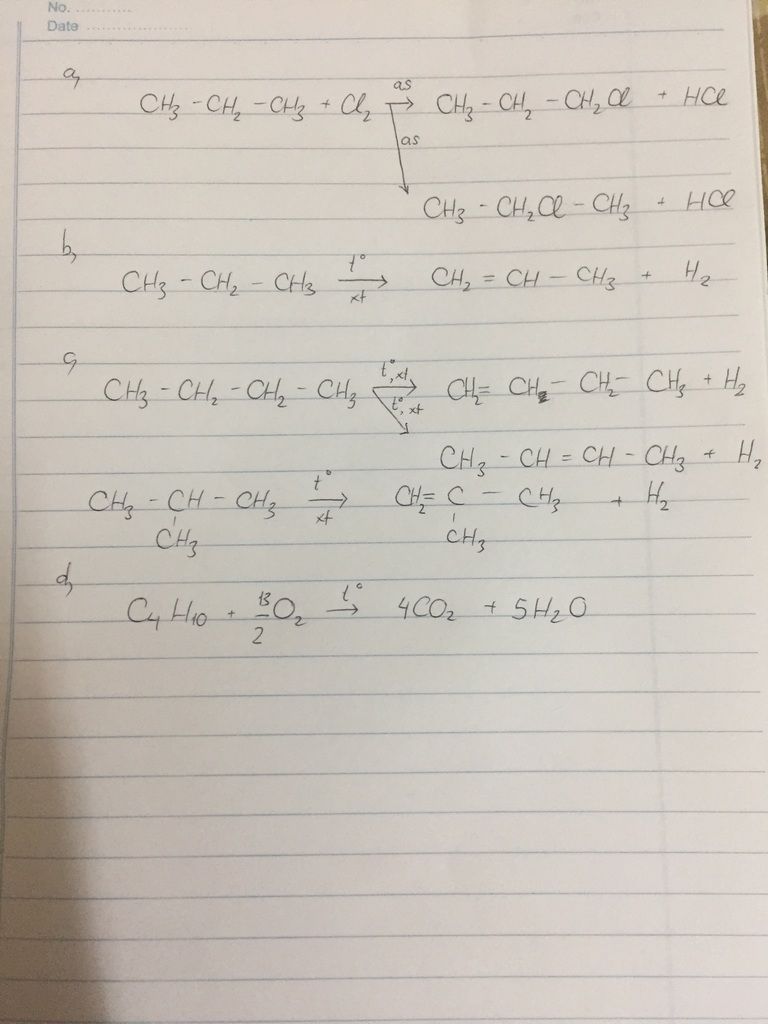 No. ...........
Date ......................
a,
CH₃ - CH₂ - CH₃ + Cl₂ →(as) CH₃ - CH₂ - CH₂Cl + HCl
as
CH₃ - CH₂Cl - CH₃ + HCl
b,
CH₃ - CH₂ - CH₃ →(t°, xt) CH₂ = CH - CH₃ + H₂
c,
CH₃ - CH₂ - CH₂ - CH₃ →(t°, xt) CH₂= CH - CH₂ - CH₃ + H₂
t°, xt
CH₃ - CH = CH - CH₃ + H₂
CH₃ - CH - CH₃ →(t°, xt) CH₂= C - CH₃ + H₂
CH₃ CH₃
d,
C₄H₁₀ + 13/2 O₂ →(t°) 4CO₂ + 5H₂O